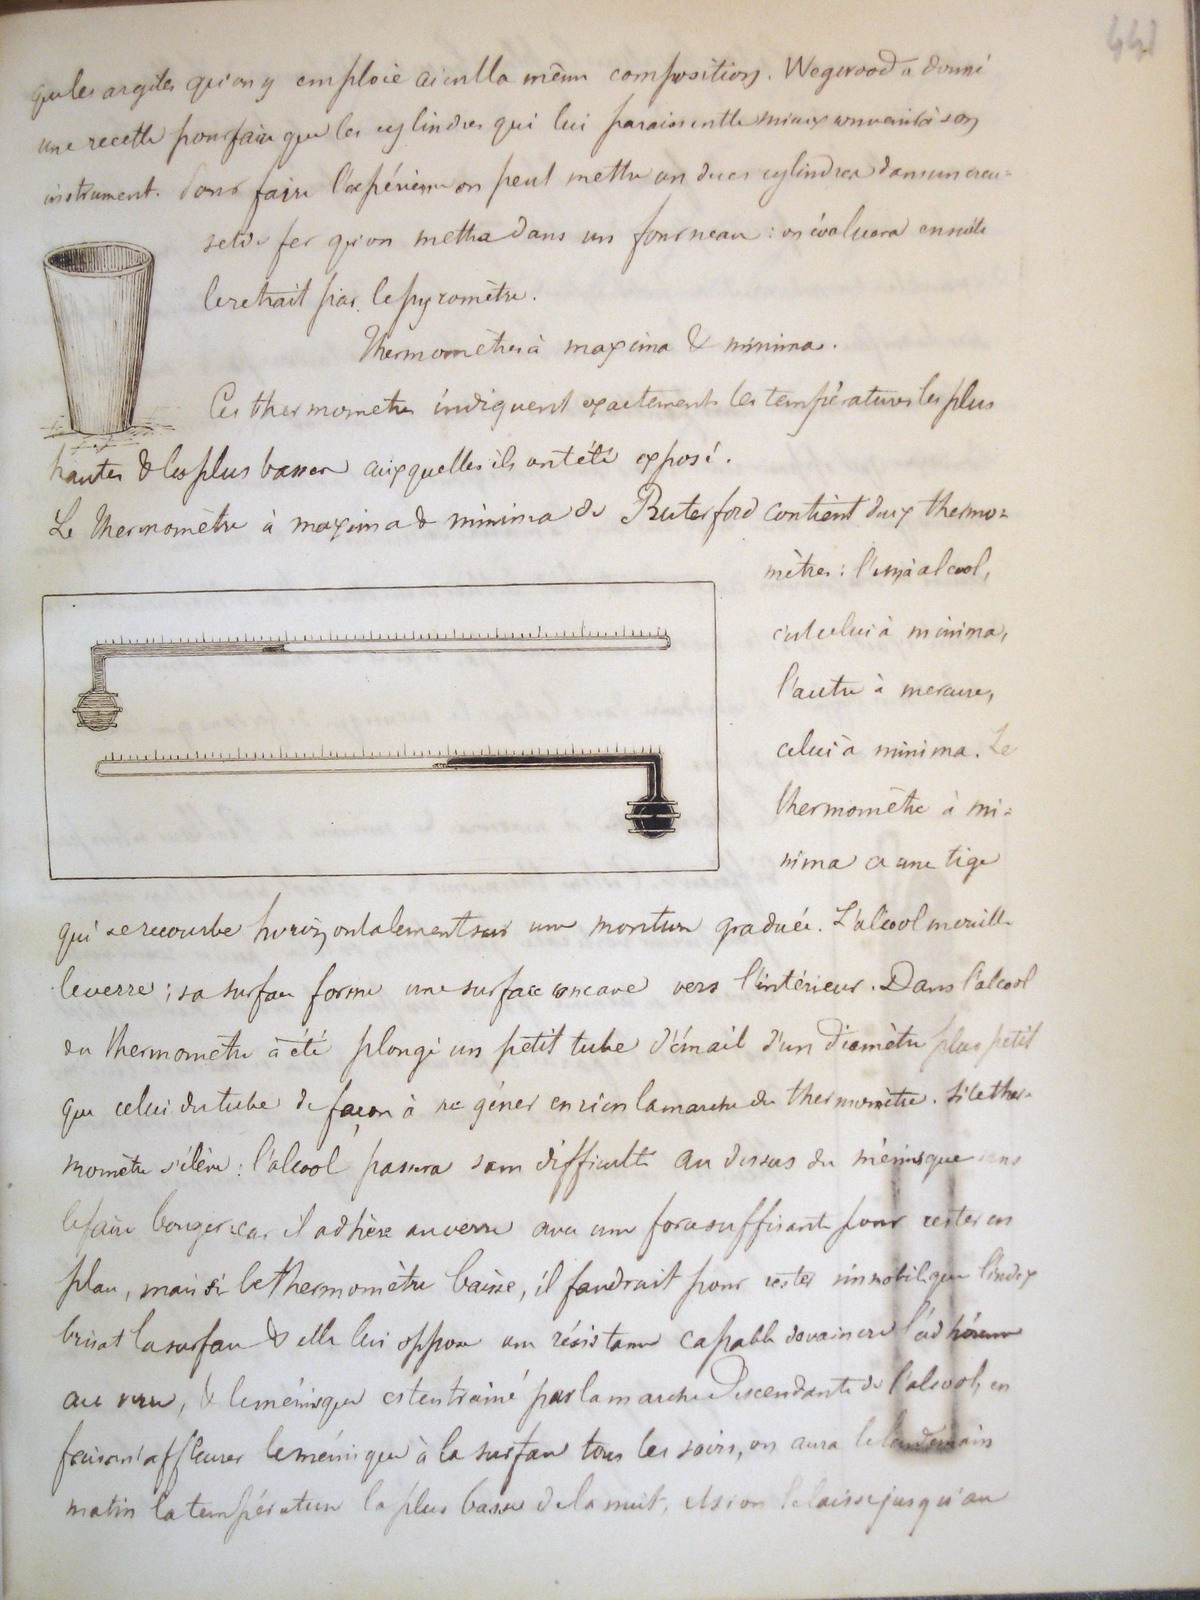 441
que les argiles qu'on y emploie aient la même composition. Wegwood a donné
une recette pour faire que les cylindres qui lui paraissent le mieux convenir à son
instrument. Pour faire l'expérience on peut mettre un de ces cylindres dans un creu=
set de fer qu'on mettra dans un fourneau : on évaluera ensuite
le retrait par le pyromètre.
Thermomètres à maxima & minima.
Ces thermometres indiquent exactement les températures les plus
hautes & les plus basses auxquelles ils ont été exposé.
Le thermomètre à maxima & minima de Ruterford contient deux thermo=
mètres : l'un à alcool,
c'est celui à minima,
l'autre à mercure,
celui à minima. Le
thermomètre à mi=
nima a une tige
qui se recourbe horizontalement sur une monture graduée. L'alcool mouille
le verre ; sa surface forme une surface concave vers l'intérieur. Dans l'alcool
du thermomètre a été plongé un petit tube d'émail d'un diamètre plus petit
que celui du tube de façon à ne gêner en rien la marche du thermomètre. Si le ther=
momètre s'élève : l'alcool passera sans difficulté au dessus du ménisque sans
le faire bouger : car il adhère au verre avec une force suffisante pour rester en
plan, mais si le thermomètre baisse, il faudrait pour rester immobile que l'index
brisat la surface & elle lui oppose une résistance capable de vaincre l'adhérence
au verre, & le ménisque est entrainé par la marche descendante de l'alcool, en
faisant affleurer le ménisque à la surface tous les soirs, on aura le lendemain
matin la température la plus basse de la nuit, et si on le laisse jusqu'au